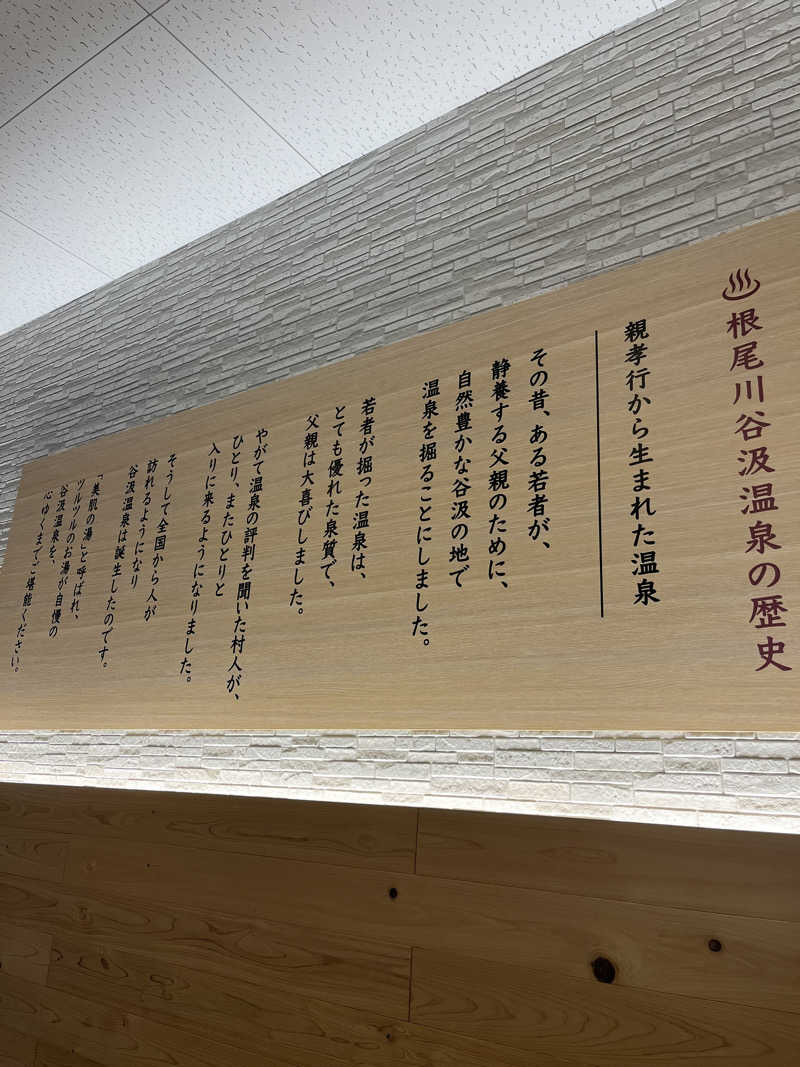 ♨根尾川谷汲温泉の歴史
親孝行から生まれた温泉
その昔、ある若者が、
静養する父親のために、
自然豊かな谷汲の地で
温泉を掘ることにしました。
若者が掘った温泉は、
とても優れた泉質で、
父親は大喜びしました。
やがて温泉の評判を聞いた村人が、
ひとり、またひとりと
入りに来るようになりました。
そうして全国から人が
訪れるようになり
谷汲温泉は誕生したのです。
「美肌の湯」と呼ばれ、
ツルツルのお湯が自慢の
谷汲温泉を、
心ゆくまでご堪能ください。